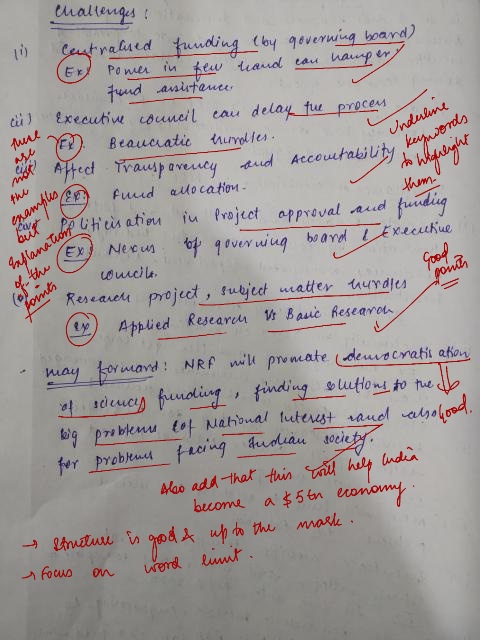 Challenges:
(i) Centralised funding (by governing board)
Ex: Power in few hand can hamper
fund assistance.
(ii) Executive council can delay the process
Ex: Beaucratic hurdles.
(iii) Affect Transparency and Accountability
Ex: Fund allocation.
(iv) Politicisation in Project approval and funding
Ex: Nexus of governing board & Executive
councils.
(v) Research project, subject matter hurdles
Ex Applied Research Vs Basic Research
These
are
not
the
examples
but
Explanation
of the
points
Underline
keywords
to highlight
them.
Good
points
Way forward: NRF will promote (democratisation
of science) funding, finding solutions to the
big problems (of National Interest and also
for problems facing Indian society.
Good.
Also add that this will help India
become a $5tn economy.
→ Structure is good & up to the mark.
→ Focus on word limit.